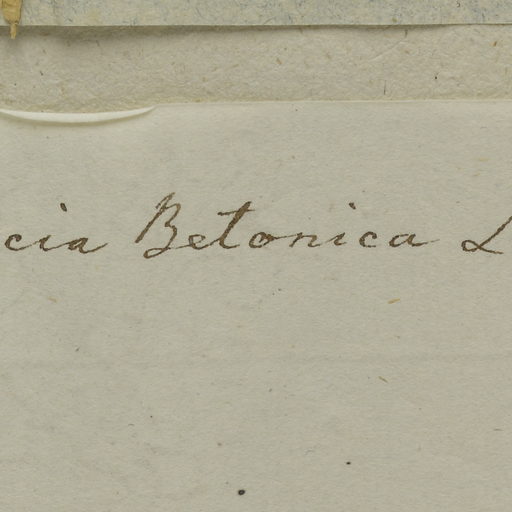 cia Betonica L